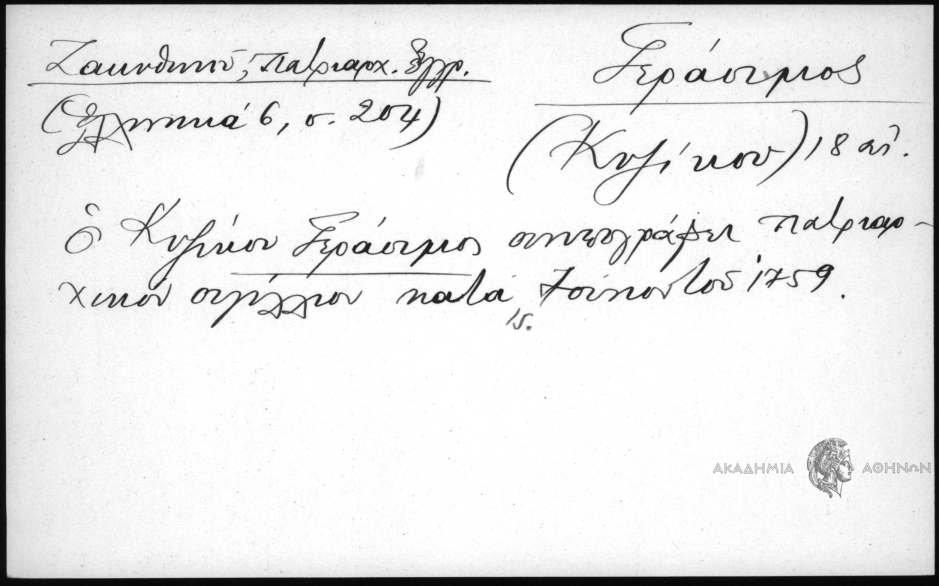 Ζακυθηνοῦ, Πατριαρχ. ἔγγρ.
(Ἑλληνικά 6, σ. 204)
Γεράσιμος
(Κυζίκου) 18 αἰ.
ὁ Κυζίκου Γεράσιμος συνυπογράφει πατριαρ-
χικόν σιγίλλιον κατά τοῦ 1759.
ΑΚΑΔΗΜΙΑ ΑΘΗΝΩΝ